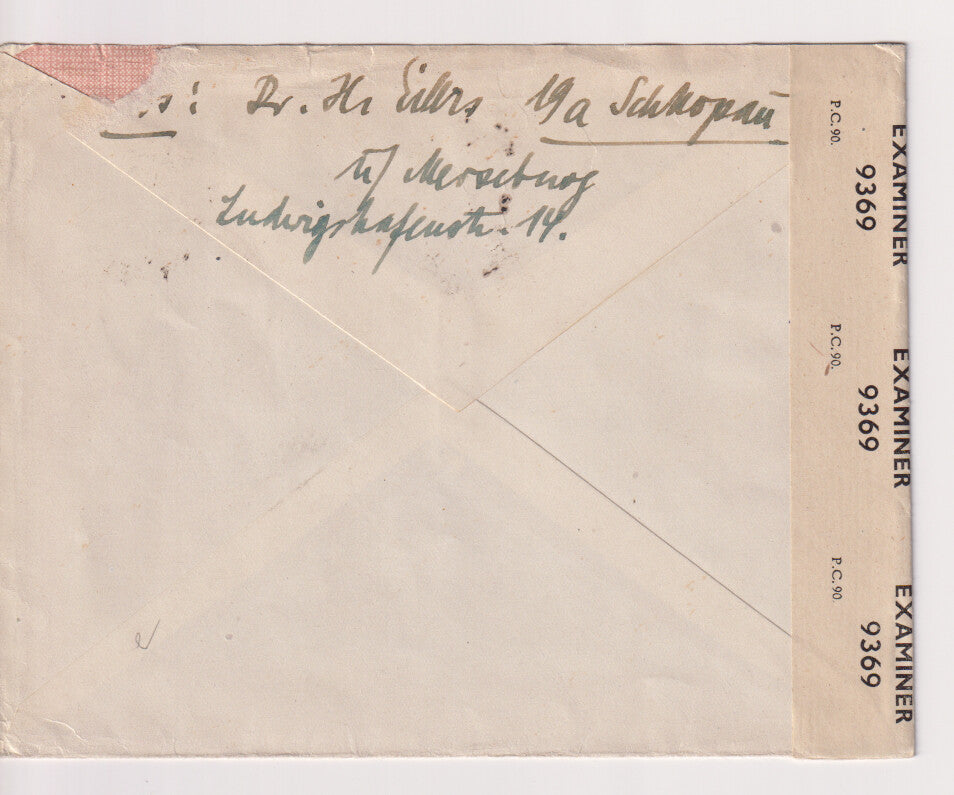 s: Dr. H. Eilers 19a Schkopau
ü/ Merseburg
Ludwigshafenstr. 14.
P.C. 90.
EXAMINER
9369
P.C. 90.
EXAMINER
9369
P.C. 90.
EXAMINER
9369